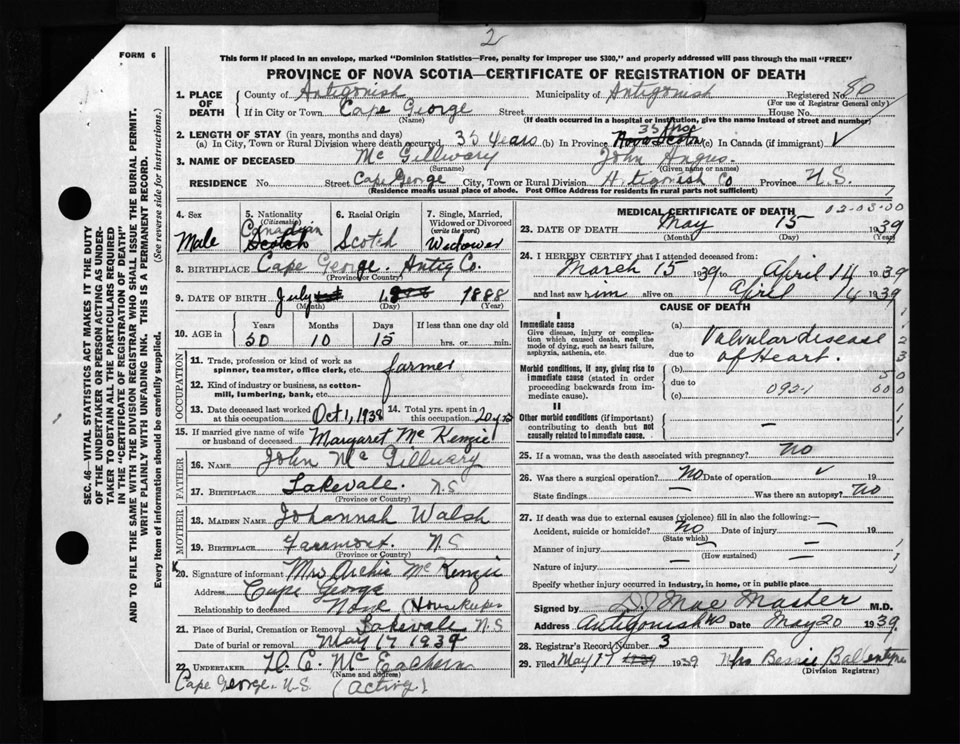 2
FORM 6
This form if placed in an envelope, marked "Dominion Statistics—Free, penalty for improper use $300," and properly addressed will pass through the mail "FREE"
PROVINCE OF NOVA SCOTIA—CERTIFICATE OF REGISTRATION OF DEATH
SEC. 46—VITAL STATISTICS ACT MAKES IT THE DUTY
OF THE UNDERTAKER OR PERSON ACTING AS UNDER-
TAKER TO OBTAIN ALL THE PARTICULARS REQUIRED
IN THE "CERTIFICATE OF REGISTRATION OF DEATH"
AND TO FILE THE SAME WITH THE DIVISION REGISTRAR WHO SHALL ISSUE THE BURIAL PERMIT.
WRITE PLAINLY WITH UNFADING INK. THIS IS A PERMANENT RECORD.
Every item of information should be carefully supplied. (See reverse side for instructions.)
1. PLACE OF DEATH
County of Antigonish Municipality of Antigonish Registered No. 80
(For use of Registrar General only)
If in City or Town Cape George Street House No.
(Name) (If death occurred in a hospital or institution, give the name instead of street and number)
2. LENGTH OF STAY (in years, months and days)
(a) In City, Town or Rural Division where death occurred 35 Years (b) In Province 35 Nova Scotia (c) In Canada (if immigrant)
3. NAME OF DECEASED Mc Gillivary John Angus.
(Surname) (Given name or names)
RESIDENCE No. Street Cape George City, Town or Rural Division Antigonish Co Province N.S.
(Residence means usual place of abode. Post Office Address for residents in rural parts not sufficient)
4. Sex
Male
5. Nationality
(Citizenship)
Canadian
Scotch
6. Racial Origin
Scotch
7. Single, Married,
Widowed or Divorced
(write the word)
Widower
8. BIRTHPLACE Cape George. Antig Co.
(Province or Country)
9. DATE OF BIRTH July 1888
(Month) (Day) (Year)
10. AGE in Years Months Days If less than one day old
50 10 15 hrs. or min.
OCCUPATION
11. Trade, profession or kind of work as
spinner, teamster, office clerk, etc. farmer
12. Kind of industry or business, as cotton-
mill, lumbering, bank, etc.
13. Date deceased last worked
at this occupation. Oct 1, 1938
14. Total yrs. spent in
this occupation. 20 yrs
15. If married give name of wife
or husband of deceased Margaret Mc Kenzie
FATHER
16. NAME John Mc Gillivary
17. BIRTHPLACE Lakevale. N.S
(Province or Country)
MOTHER
18. MAIDEN NAME Johannah Walsh
19. BIRTHPLACE Fairmont. N S
(Province or Country)
20. Signature of informant Mrs Archie Mc Kenzie
Address Cape George
Relationship to deceased None (Housekeeper
21. Place of Burial, Cremation or Removal Lakevale N S
Date of burial or removal May 17 1939
22. UNDERTAKER H. C. Mc Eachern
(Name and address)
Cape George. N.S (Acting)
MEDICAL CERTIFICATE OF DEATH
02-03-00
23. DATE OF DEATH May 15 1939
(Month) (Day) (Year)
24. I HEREBY CERTIFY that I attended deceased from:
March 15 1939 to April 14 1939
and last saw him alive on April 14 1939
CAUSE OF DEATH
I
Immediate cause
Give disease, injury or complica-
tion which caused death, not the
mode of dying, such as heart failure,
asphyxia, asthenia, etc.
(a) Valvular disease
due to of Heart.
Morbid conditions, if any, giving rise to
immediate cause (stated in order
proceeding backwards from im-
mediate cause).
(b)
due to
(c) 092-1
II
Other morbid conditions (if important)
contributing to death but not
causally related to immediate cause.
25. If a woman, was the death associated with pregnancy? no
26. Was there a surgical operation? No Date of operation 19
State findings Was there an autopsy? No
27. If death was due to external causes (violence) fill in also the following:—
Accident, suicide or homicide? No Date of injury 19
(State which)
Manner of injury
(How sustained)
Nature of injury
Specify whether injury occurred in industry, in home, or in public place
Signed by D. J Mac Master M.D.
Address Antigonish NS Date May 20 1939
28. Registrar's Record Number 3
29. Filed May 17 1939 Mrs Bessie Ballentyne
(Division Registrar)